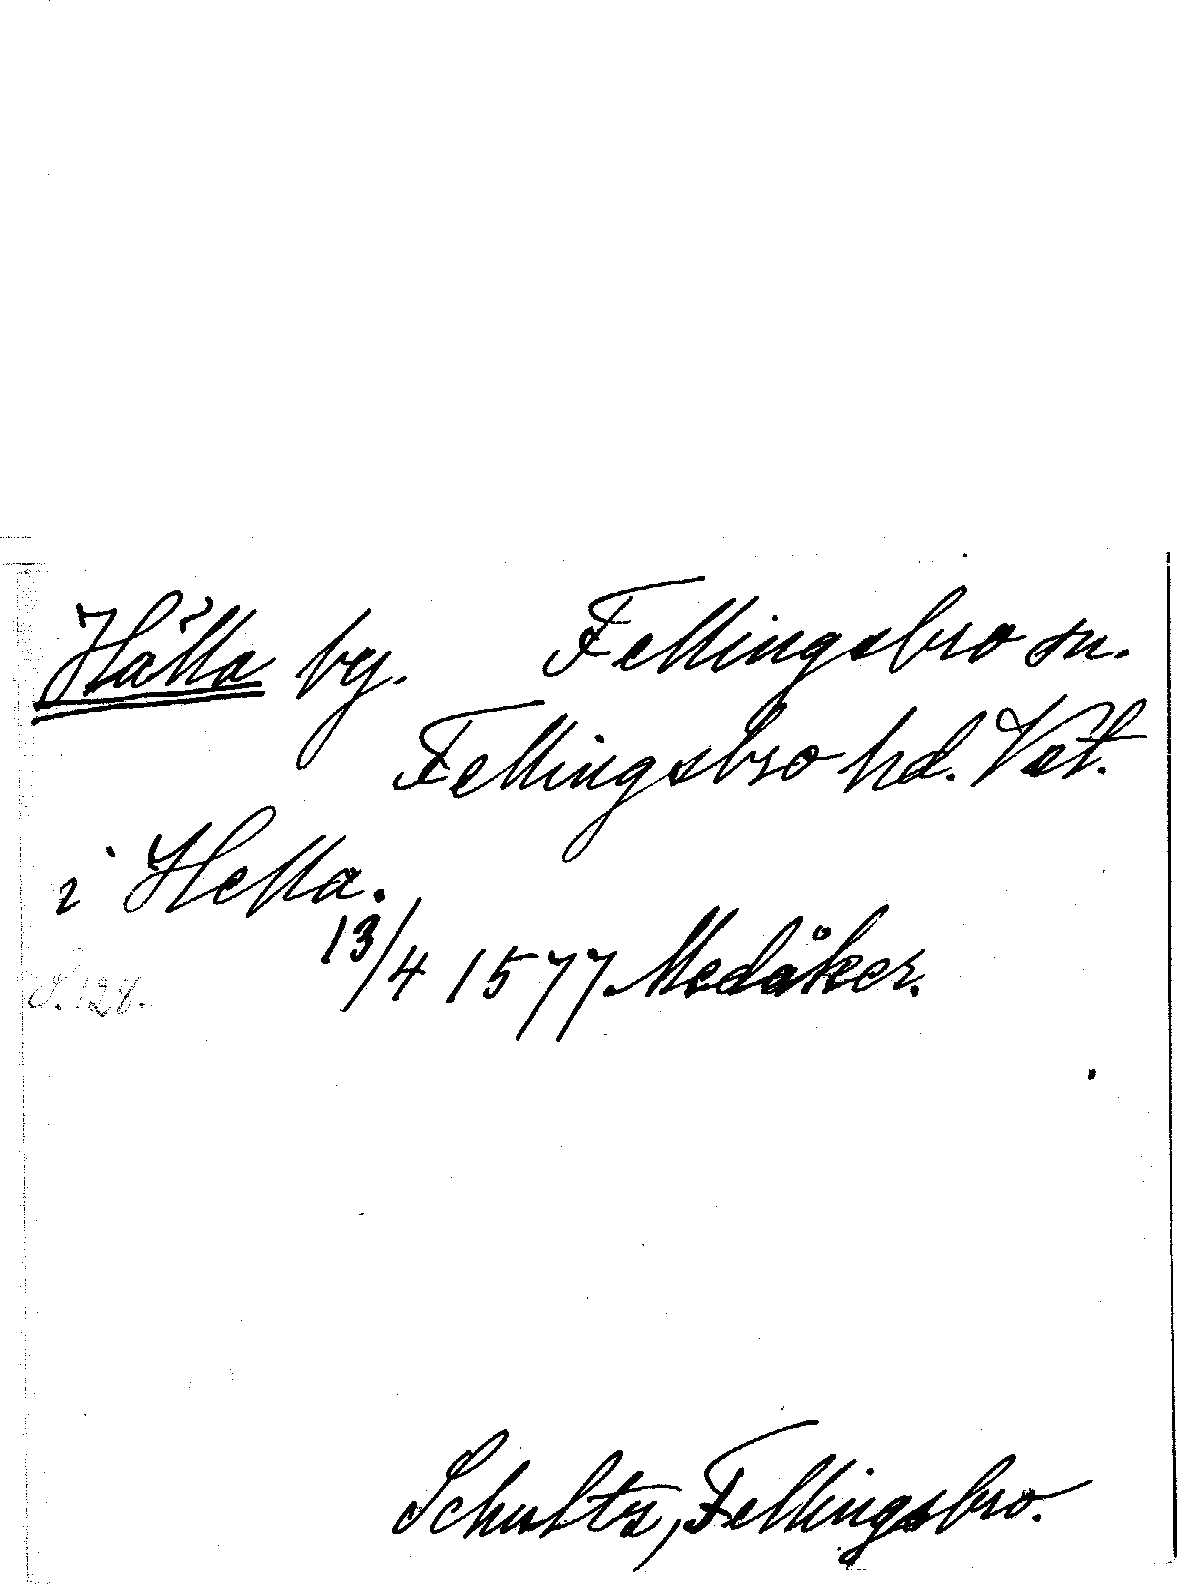 Hälla by. Fellingsbro sn.
Fellingsbro hd. Vst.
i Hella.
13/4 1577 Medåker.
S. 128.
Schults, Fellingsbro.